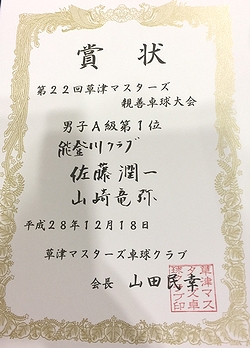 賞状
第22回草津マスターズ
親善卓球大会
男子A級第1位
能登川クラブ
佐藤潤一
山崎竜弥
平成28年12月18日
草津マスターズ卓球クラブ
会長 山田民幸
草津マス
ターズ卓
球クラブ印